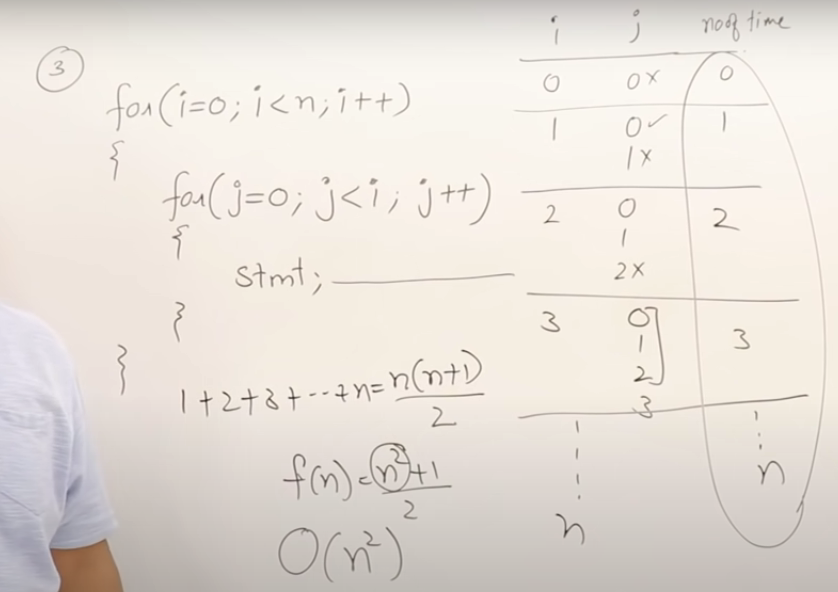 3
for(i=0; i<n; i++)
{
for(j=0; j<i; j++)
{
stmt;
}
}
1+2+3+--+n=n(n+1)/2
f(n)=n²+1/2
O(n²)
i j no of time
0 0× 0
1 0✓ 1
1×
2 0 2
1
2×
3 0 3
1
2
3
n n